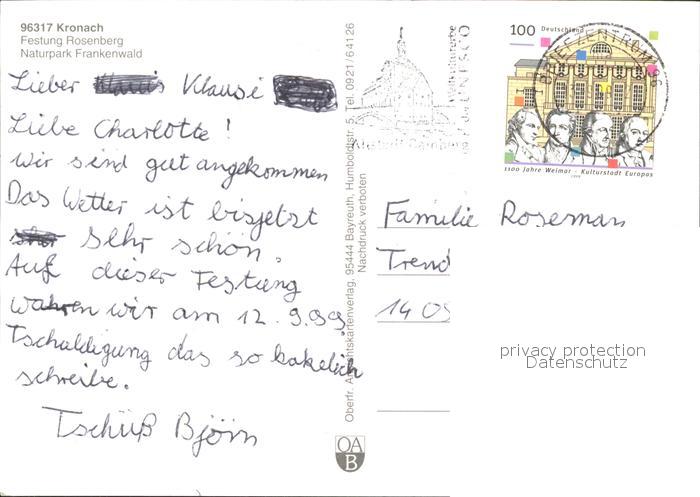 96317 Kronach
Festung Rosenberg
Naturpark Frankenwald
Lieber Klausi
Liebe Charlotte!
wir sind gut angekommen
Das Wetter ist bisjetzt
sehr schön.
Auf dieser Festung
wahren wir am 12.9.99.
Tschuldigung das so kakelich
schreibe.
Tschüß Björn
Oberfr. Ansichtskartenverlag, 95444 Bayreuth, Humboldtstr. 5, Tel. 0921/64126
Nachdruck verboten
OA
B
UNESCO
BRIEFZENTRUM 96
100 Deutschland
1100 Jahre Weimar - Kulturstadt Europas
1999
Familie Roseman
Trend
14 05
privacy protection
Datenschutz